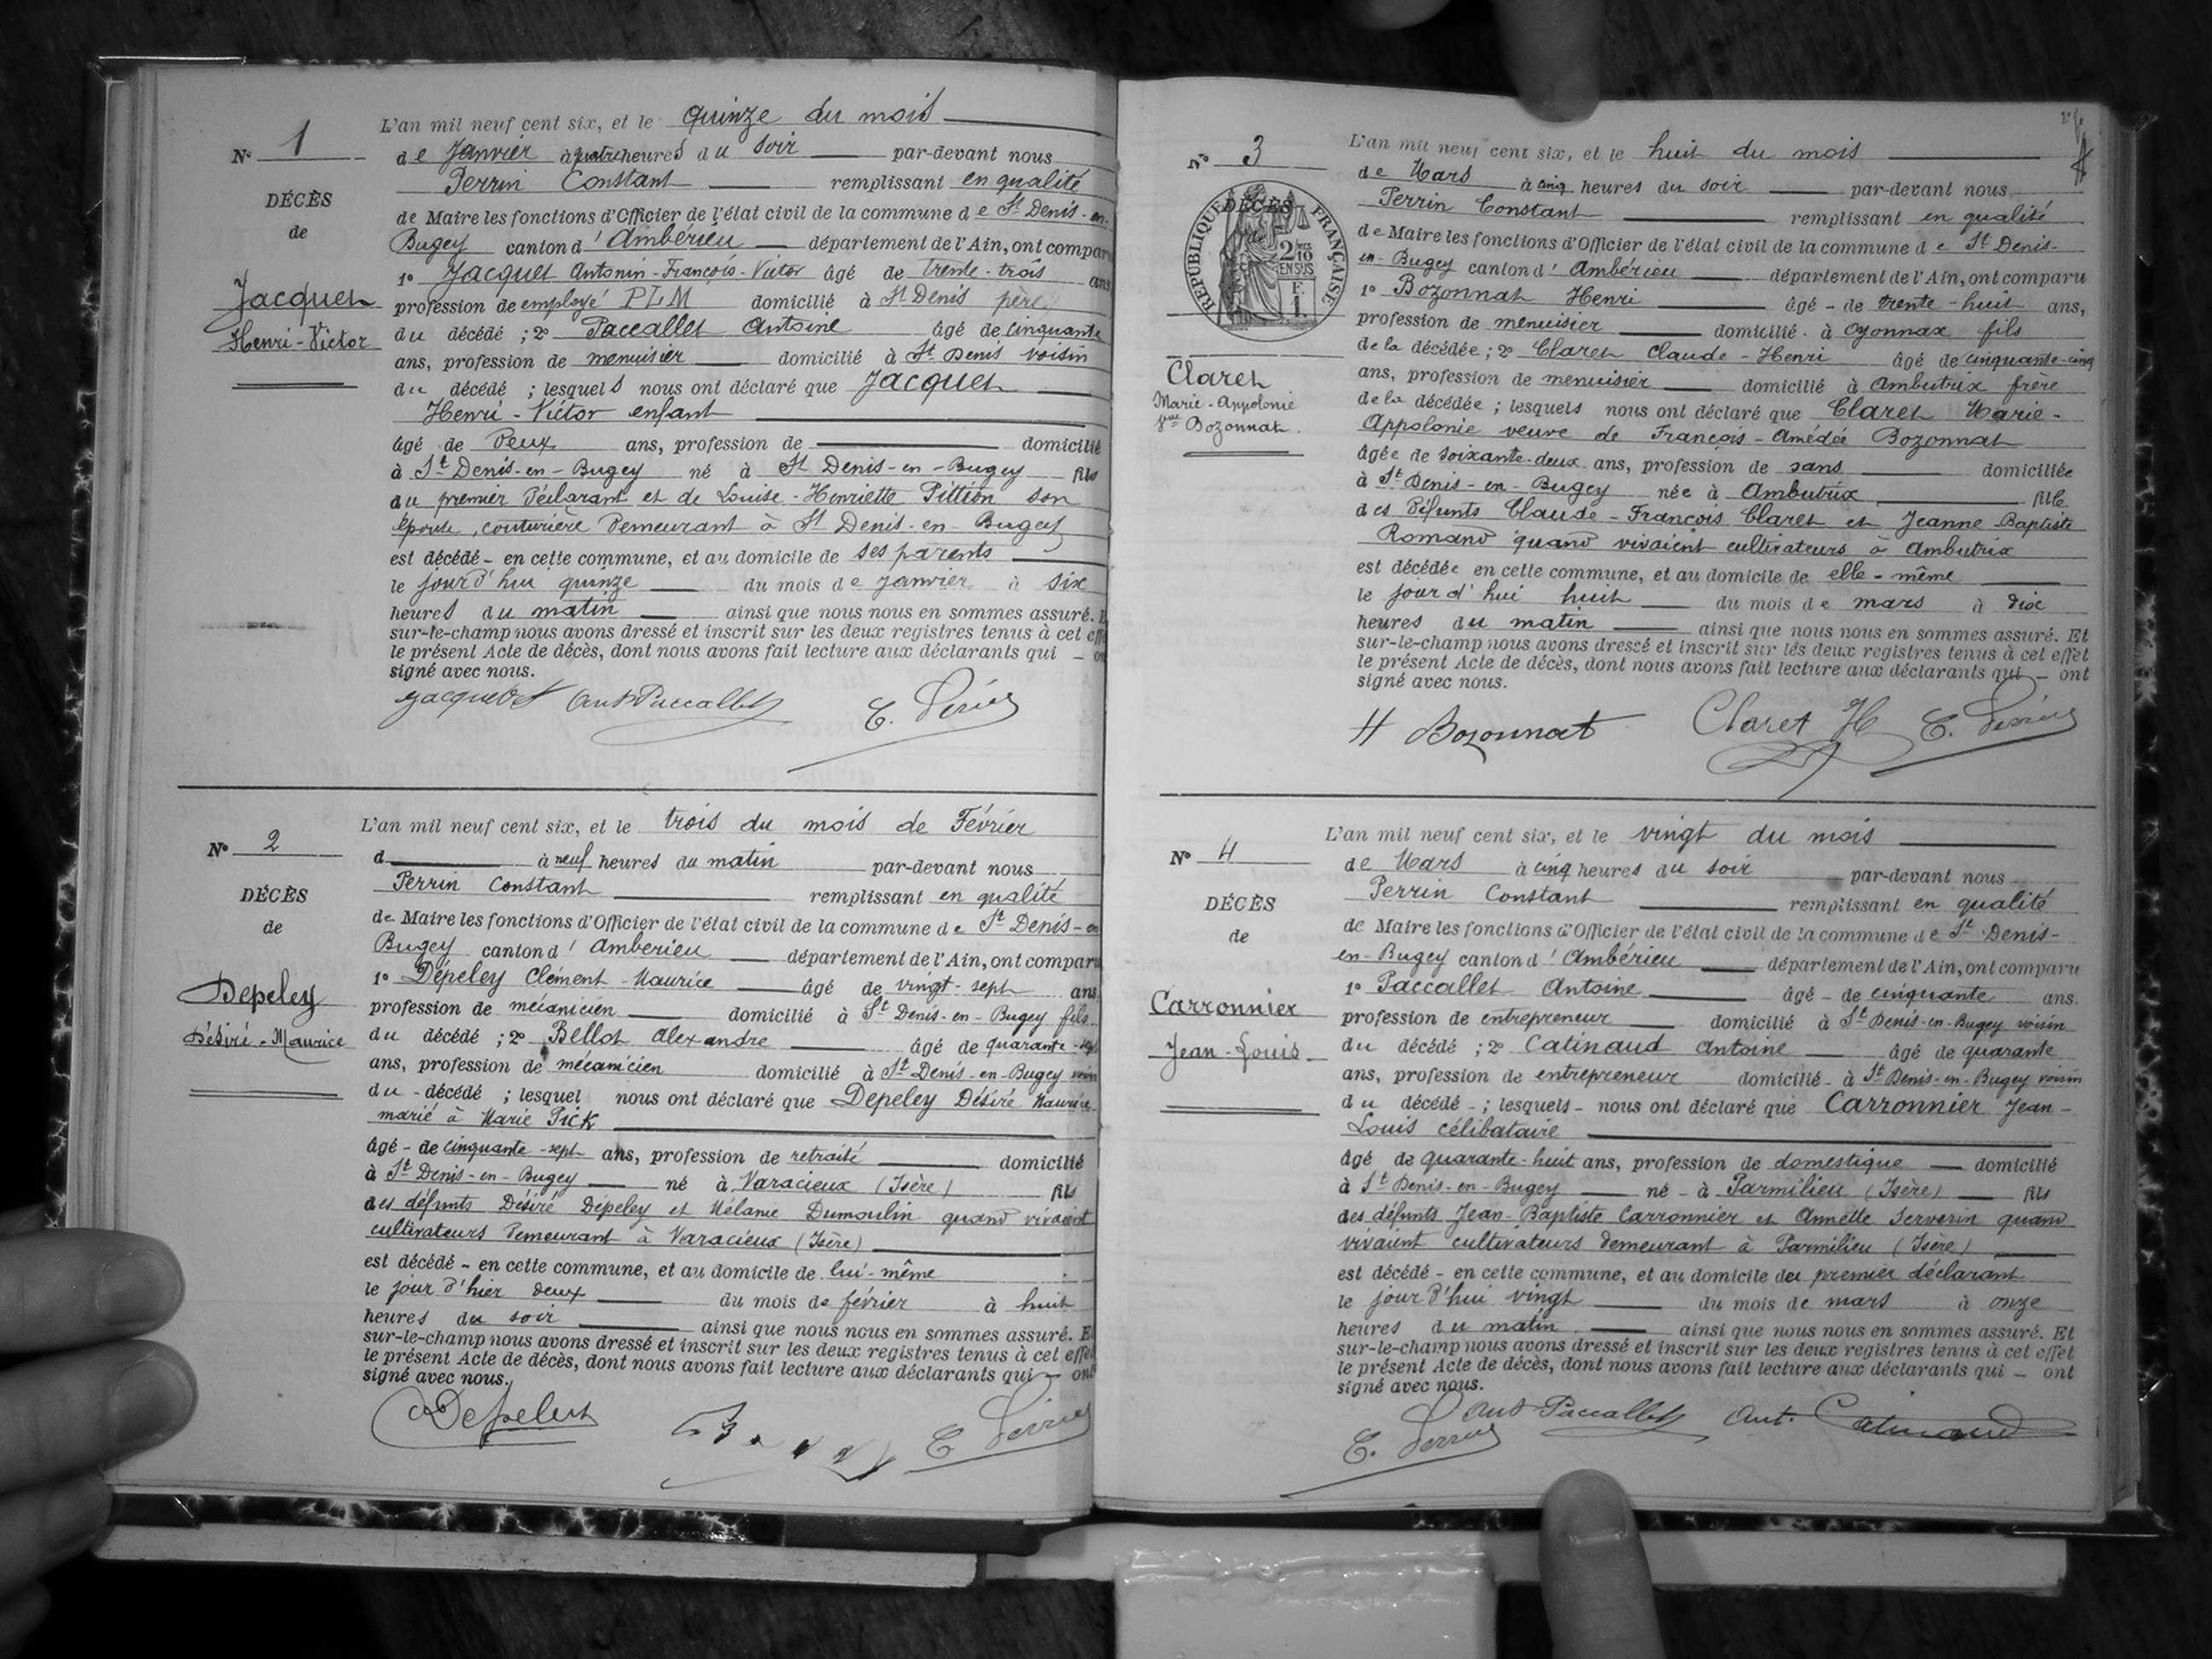 N° 1
DÉCÈS
de
Jacquet
Henri-Victor
L'an mil neuf cent six, et le quinze du mois
de Janvier à quatre heures du soir par-devant nous
Perrin Constant remplissant en qualité
de Maire les fonctions d'Officier de l'état civil de la commune de St Denis-en-
Bugey canton d'Ambérieu département de l'Ain, ont compar
1° Jacquet Antonin-François-Victor âgé de trente-trois ans
profession de employé PLM domicilié à St Denis père
du décédé ; 2° Paccallet Antoine âgé de cinquante
ans, profession de menuisier domicilié à St Denis voisin
du décédé ; lesquels nous ont déclaré que Jacquet
Henri-Victor enfant
âgé de Deux ans, profession de domicilié
à St Denis-en-Bugey né à St Denis-en-Bugey fils
du premier Déclarant et de Louise-Henriette Pittion son
épouse, couturière Demeurant à St Denis-en-Bugey
est décédé en cette commune, et au domicile de ses parents
le jour d'hui quinze du mois de Janvier à six
heures du matin ainsi que nous nous en sommes assuré. E
sur-le-champ nous avons dressé et inscrit sur les deux registres tenus à cet eff
le présent Acte de décès, dont nous avons fait lecture aux déclarants qui on
signé avec nous.
Jacquet Ant Paccallet C. Perrin
N° 2
DÉCÈS
de
Depeley
Désiré-Maurice
L'an mil neuf cent six, et le trois du mois de Février
d à neuf heures du matin par-devant nous
Perrin Constant remplissant en qualité
de Maire les fonctions d'Officier de l'état civil de la commune de St Denis-en
Bugey canton d'Amberieu département de l'Ain, ont comparu
1° Dépeley Clément-Maurice âgé de vingt-sept ans
profession de mécanicien domicilié à St Denis-en-Bugey fils
du décédé ; 2° Bellot Alexandre âgé de quarante-sept
ans, profession de mécanicien domicilié à St Denis-en-Bugey voisin
du décédé ; lesquel nous ont déclaré que Depeley Désiré Maurice
marié à Marie Pick
âgé de cinquante-sept ans, profession de retraité domicilié
à St Denis-en-Bugey né à Varacieux (Isère) fils
des défunts Désiré Dépeley et Mélanie Dumoulin quand vivaient
cultivateurs Demeurant à Varacieux (Isère)
est décédé en cette commune, et au domicile de lui-même
le jour d'hier deux du mois de février à huit
heures du soir ainsi que nous nous en sommes assuré. E
sur-le-champ nous avons dressé et inscrit sur les deux registres tenus à cet effe
le présent Acte de décès, dont nous avons fait lecture aux déclarants qui ont
signé avec nous.
Depeley C Perrin
N° 3
RÉPUBLIQUE FRANÇAISE
DÉCÈS
2/10 EN SUS
F. 1.
Claret
Marie-Appolonie
Vve Bozonnat
L'an mil neuf cent six, et le huit du mois
de Mars à cinq heures du soir par-devant nous
Perrin Constant remplissant en qualité
de Maire les fonctions d'Officier de l'état civil de la commune de St Denis-
en-Bugey canton d'Ambérieu département de l'Ain, ont comparu
1° Bozonnat Henri âgé de trente-huit ans,
profession de menuisier domicilié à Oyonnax fils
de la décédée ; 2° Claret Claude-Henri âgé de cinquante-cinq
ans, profession de menuisier domicilié à Ambutrix frère
de la décédée ; lesquels nous ont déclaré que Claret Marie-
Appolonie veuve de François-Amédée Bozonnat
âgée de soixante-deux ans, profession de sans domiciliée
à St Denis-en-Bugey née à Ambutrix fille
des Défunts Claude-François Claret et Jeanne-Baptiste
Romand quand vivaient cultivateurs à Ambutrix
est décédée en cette commune, et au domicile de elle-même
le jour d'hui huit du mois de mars à dix
heures du matin ainsi que nous nous en sommes assuré. Et
sur-le-champ nous avons dressé et inscrit sur les deux registres tenus à cet effet
le présent Acte de décès, dont nous avons fait lecture aux déclarants qui ont
signé avec nous.
H Bozonnat Claret H C. Perrin
N° 4
DÉCÈS
de
Carronnier
Jean-Louis
L'an mil neuf cent six, et le vingt du mois
de Mars à cinq heures du soir par-devant nous
Perrin Constant remplissant en qualité
de Maire les fonctions d'Officier de l'état civil de la commune de St Denis-
en-Bugey canton d'Ambérieu département de l'Ain, ont comparu
1° Paccallet Antoine âgé de cinquante ans.
profession de entrepreneur domicilié à St Denis-en-Bugey voisin
du décédé ; 2° Catinaud Antoine âgé de quarante
ans, profession de entrepreneur domicilié à St Denis-en-Bugey voisin
du décédé ; lesquels nous ont déclaré que Carronnier Jean-
Louis célibataire
âgé de quarante-huit ans, profession de domestique domicilié
à St Denis-en-Bugey né à Parmilieu (Isère) fils
des défunts Jean-Baptiste Carronnier et Annette Serverin quand
vivaient cultivateurs demeurant à Parmilieu (Isère)
est décédé en cette commune, et au domicile du premier déclarant
le jour d'hui vingt du mois de mars à onze
heures du matin ainsi que nous nous en sommes assuré. Et
sur-le-champ nous avons dressé et inscrit sur les deux registres tenus à cet effet
le présent Acte de décès, dont nous avons fait lecture aux déclarants qui ont
signé avec nous.
C. Perrin Ant Paccallet Ant. Catinaud